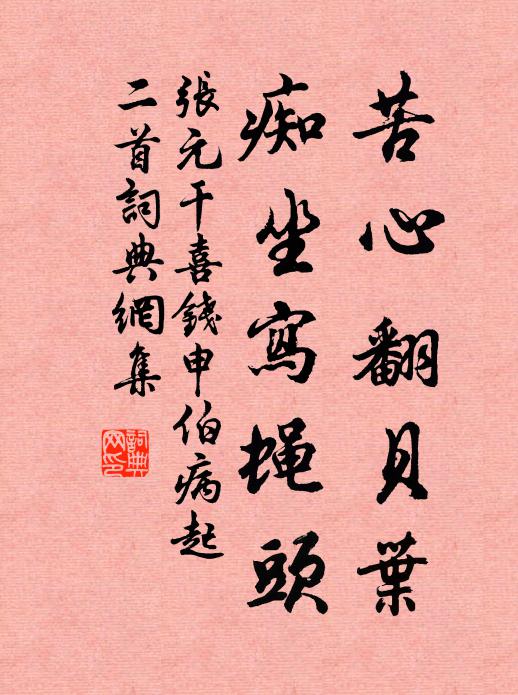 苦心翻貝葉
痴坐寫蝇頭
張元干喜錢申伯病起
二首詞典網集
詞典網印